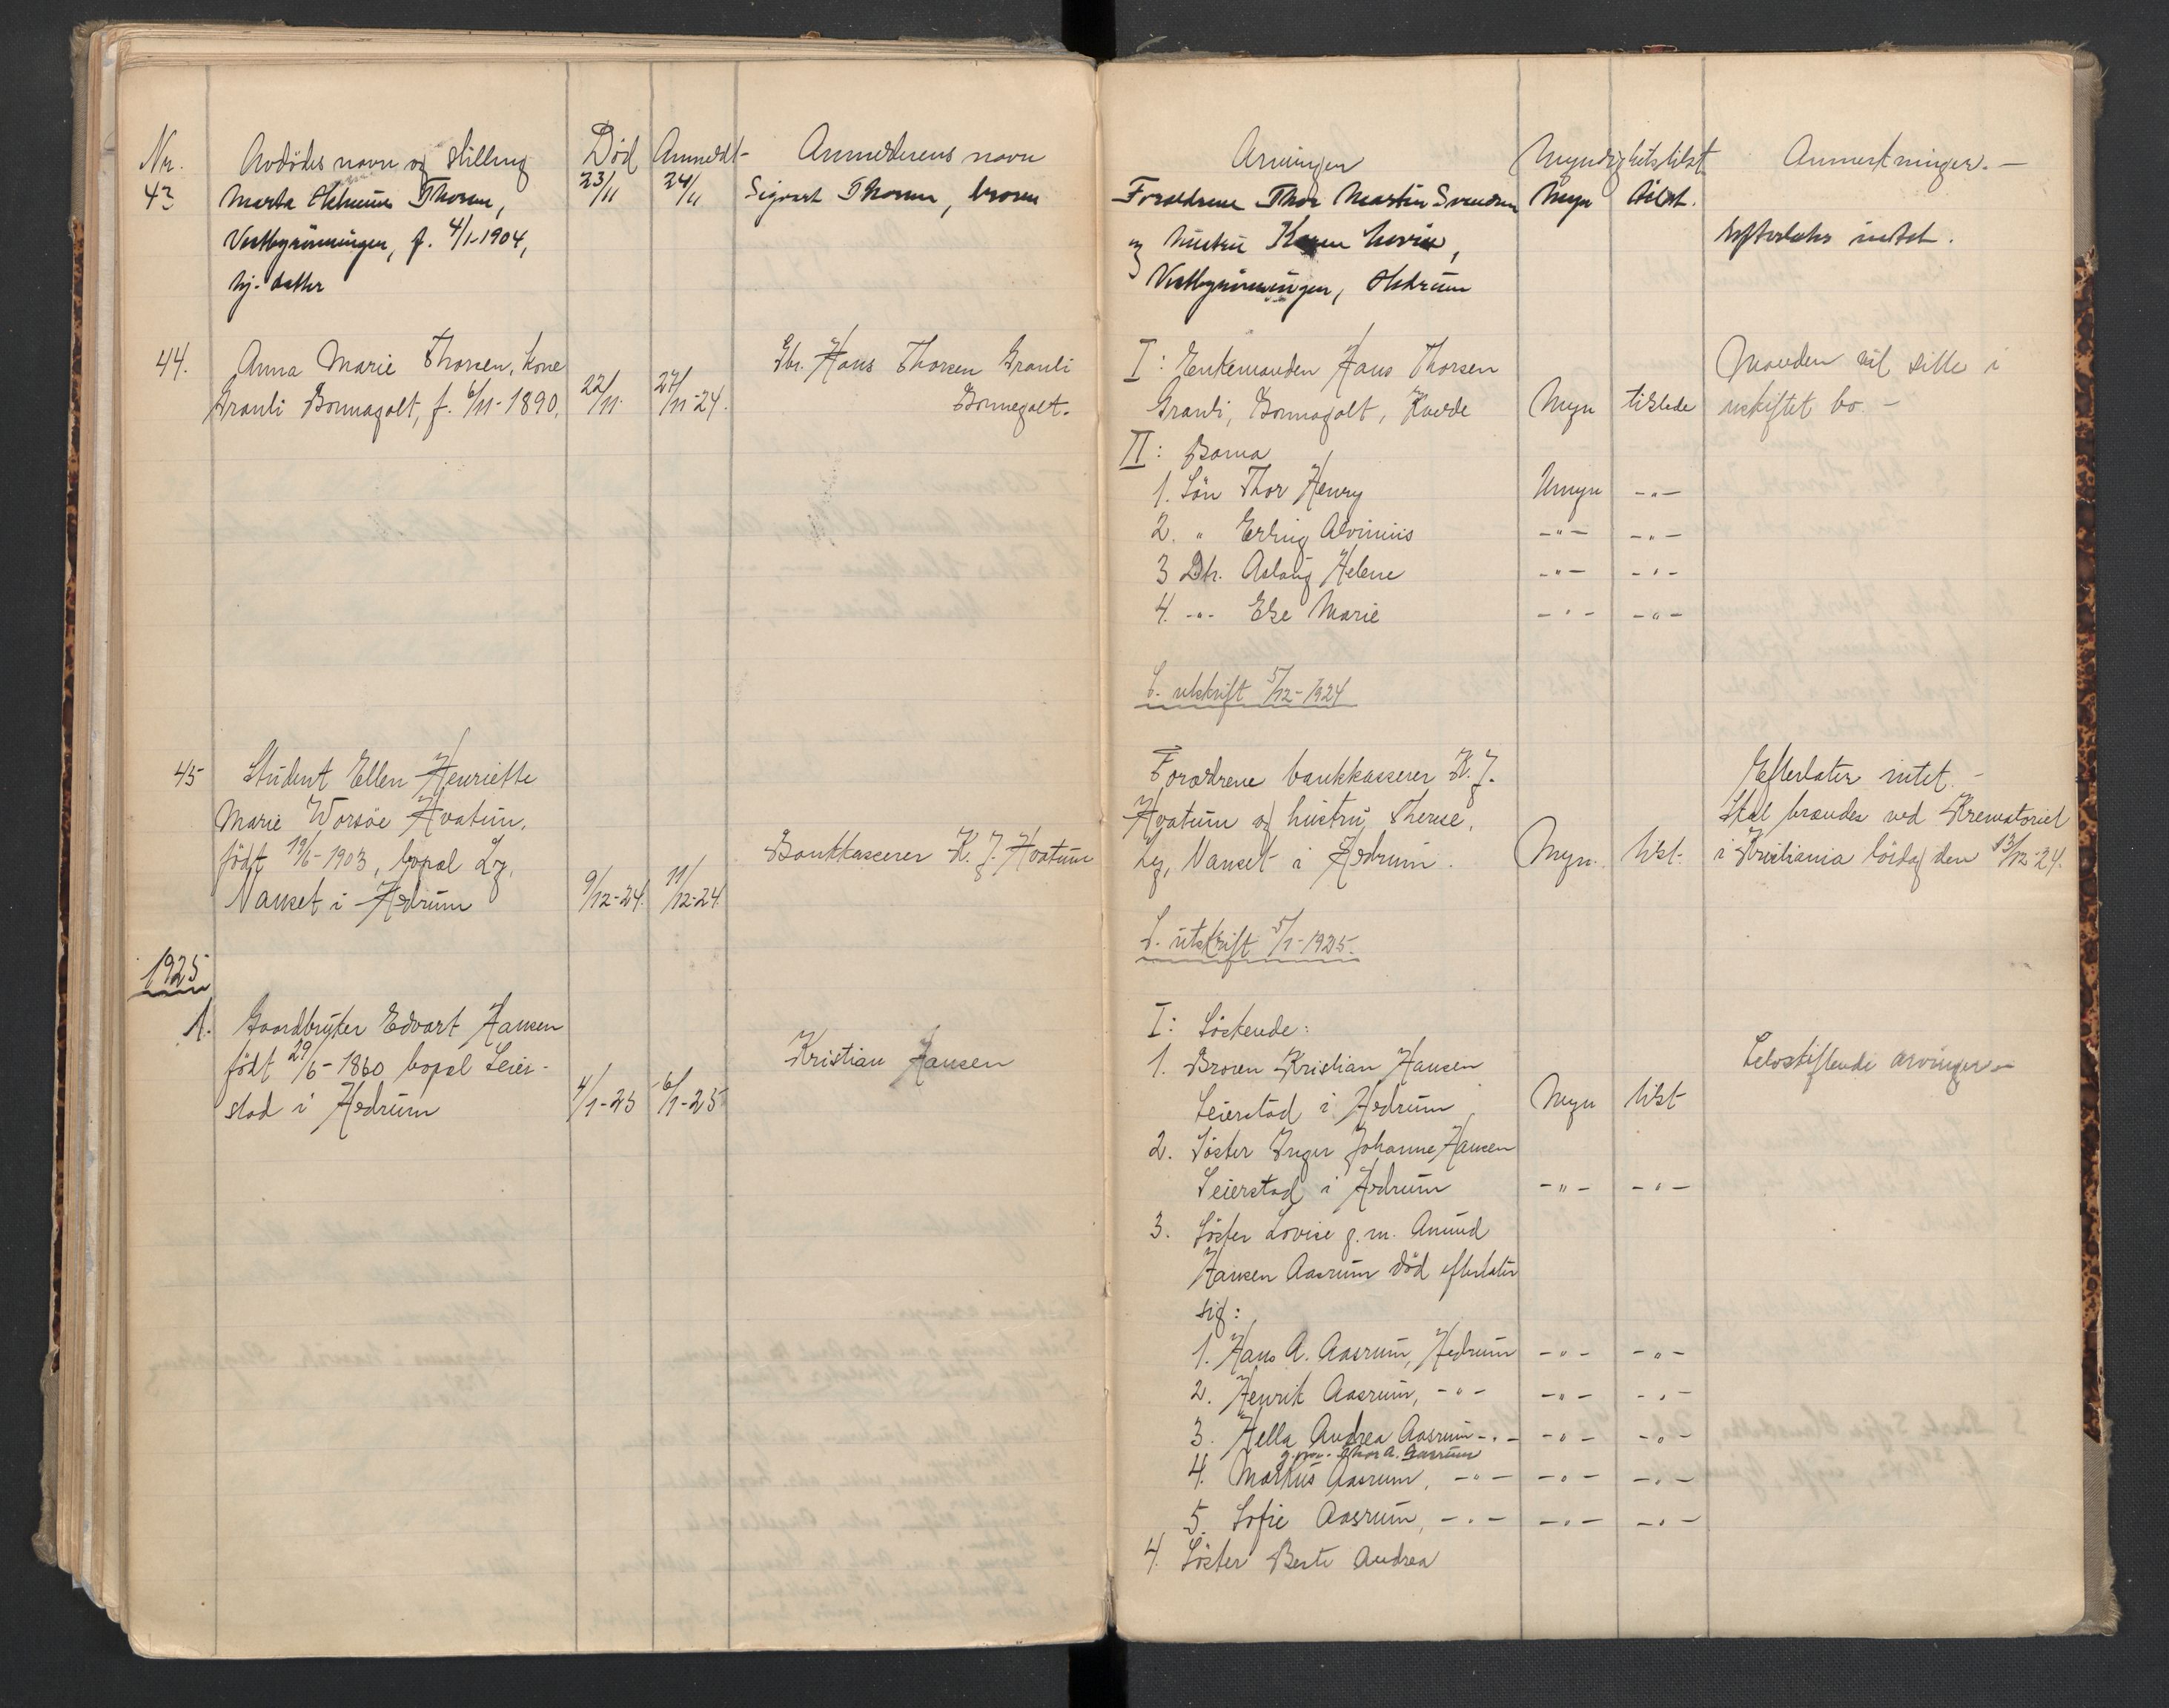 Nr. Avdödes navn og stilling Död Anmeldt- Anmelderens navn
43 Marta Helmine Thorsen, 23/11 24/11 Sigvart Thorsen, broren
Vestbygrönningen, f. 4/1-1904,
hj. datter
44. Anna Marie Thorsen, kone Gbr. Hans Thorsen Granli
Granli Bommagolt, f. 6/11-1890, 22/11. 27/11-24. Bommegolt.
45 Student Ellen Henriette
Marie Worsöe Hvatum,
født 19/6-1903, bopæl Lg, Bankkasserer K. J. Hvatum
Nanset i Hedrum 9/12-24. 11/12-24.
1925
1. Gaardbruker Edvart Hansen
født 29/6-1860 bopæl Seier- Kristian Hansen
stad i Hedrum 4/1-25 6/1-25
Arvinger Myndighetstilst. Anmerkninger. —
Forældrene Thor Martin Svendsen Myn tilst.
og hustru Karen Lovise, Efterlater intet.
Vestbygrönningen, Hedrum
I: Enkemanden Hans Thorsen Manden vil sitte i
Granli, Bommagolt, Kvelde Myn tilstede uskiftet bo. —
II: Barna
1. Sön Thor Henry Umyn -"-
2. " Erling Alvinius -"- -"-
3 Dtr. Aslaug Helene -"- -"-
4. -"- Else Marie -"- -"-
S. utskrift 5/12-1924
Forældrene bankkasserer K. J. Efterlater intet. —
Hvatum og hustru Therese, Skal brændes ved Krematoriet
Lg, Nanset i Hedrum. Myn. tilst. i Kristiania lördag den 13/12-24.
S. utskrift 5/1-1925.
I: Söskende:
1. Broren Kristian Hansen Selvskiftende arvinger —
Seierstad i Hedrum Myn tilst
2. Söster Inger Johanne Hansen
Seierstad i Hedrum -"- -"-
3. Söster Lovise g. m. Amund
Hansen Aasrum död efterlater
sig:
1. Hans A. Aasrum, Hedrum -"- -"-
2. Henrik Aasrum, -"- -"- -"-
3. Hella Andrea Aasrum -"- -"- -"-
g. m. Thor A. Aasrum
4. Markus Aasrum, -"- -"- -"-
5. Sofie Aasrum, -"- -"- -"-
4. Söster Berte Andrea